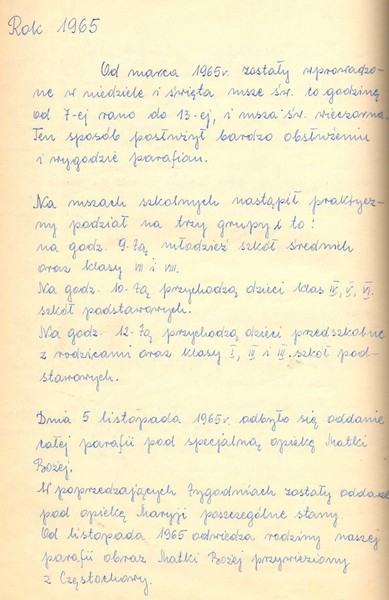 Rok 1965
Od marca 1965r. zostały wprowadzo-
ne w niedziele i święta msze św. co godzinę
od 7-ej rano do 13-ej, i msza św. wieczorna.
Ten sposób posłużył bardzo obsłużeniu
i wygodzie parafian.
Na mszach szkolnych nastąpił praktycz-
ny podział na trzy grupy i to:
na godz. 9-tą młodzież szkół średnich
oraz klasy VII i VIII.
Na godz. 10-tą przychodzą dzieci klas IV, V, VI.
szkół podstawowych.
Na godz. 12-tą przychodzą dzieci przedszkolne
z rodzicami oraz klasy I, II i III. szkół pod-
stawowych.
Dnia 5 listopada 1965r. odbyło się oddanie
całej parafii pod specjalną opiekę Matki
Bożej.
W poprzedzających tygodniach zostały oddane
pod opiekę Maryji poszczególne stany.
Od listopada 1965 odwiedza rodziny naszej
parafii obraz Matki Bożej przywieziony
z Częstochowy.